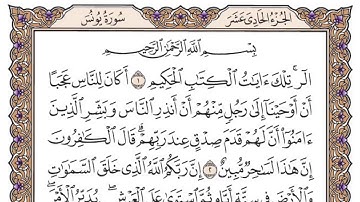 سُورَةُ يُونُسَ الجُزْءُ الحَادِي عَشَرَ
بِسْمِ اللَّهِ الرَّحْمَٰنِ الرَّحِيمِ
الٓر ۚ تِلْكَ ءَايَٰتُ الْكِتَٰبِ الْحَكِيمِ ١ أَكَانَ لِلنَّاسِ عَجَبًا
أَنْ أَوْحَيْنَآ إِلَىٰ رَجُلٍ مِّنْهُمْ أَنْ أَنذِرِ النَّاسَ وَبَشِّرِ الَّذِينَ
ءَامَنُوٓا أَنَّ لَهُمْ قَدَمَ صِدْقٍ عِندَ رَبِّهِمْ ۗ قَالَ الْكَٰفِرُونَ
إِنَّ هَٰذَا لَسَٰحِرٌ مُّبِينٌ ٢ إِنَّ رَبَّكُمُ اللَّهُ الَّذِي خَلَقَ السَّمَٰوَٰتِ
وَالْأَرْضَ فِي سِتَّةِ أَيَّامٍ ثُمَّ اسْتَوَىٰ عَلَى الْعَرْشِ ۖ يُدَبِّرُ الْأَمْرَ ۖ